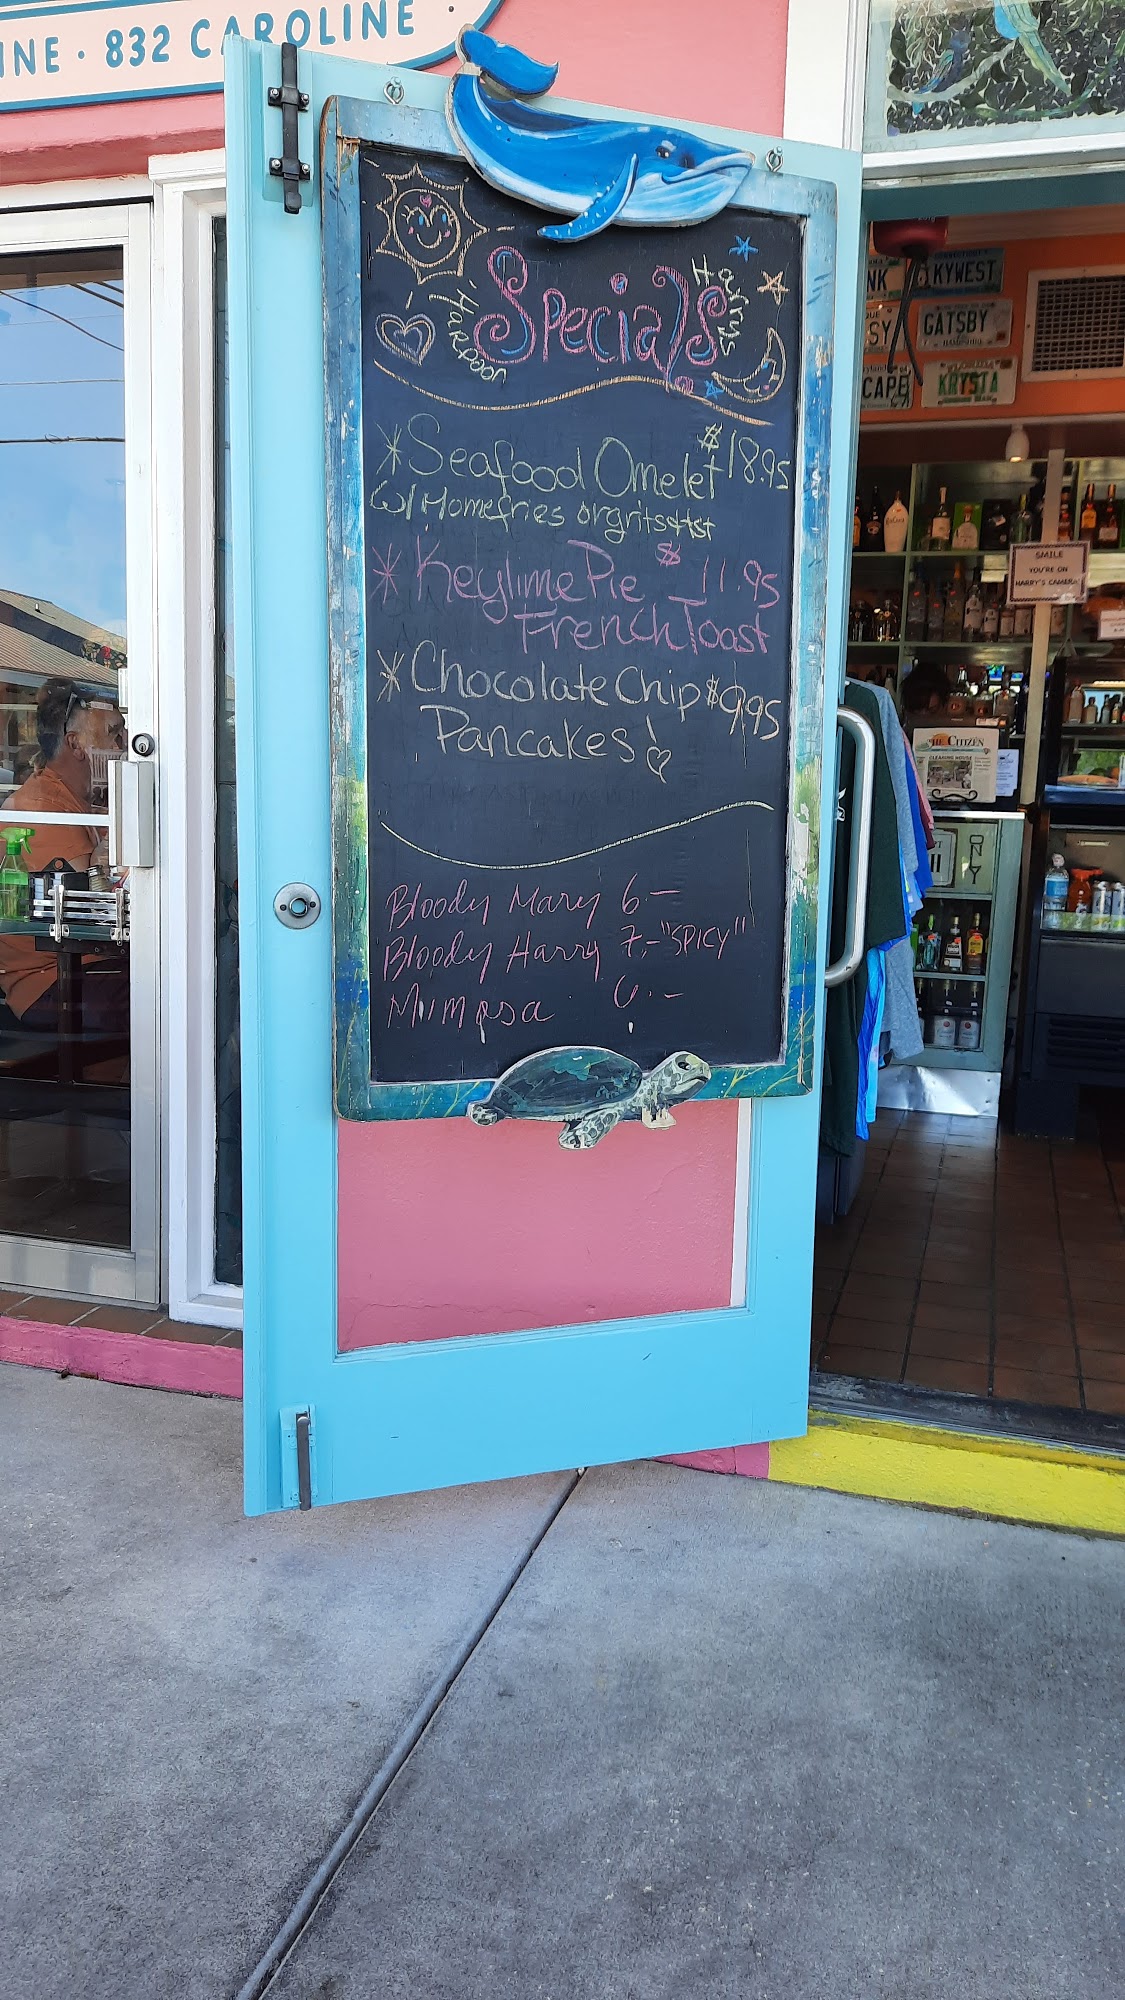 INE · 832 CAROLINE ·
Specials
Harpoon
Harrys
Seafood Omelet $18.95
w/ Homefries or grits & tst
Keylime Pie $11.95
French Toast
Chocolate Chip $9.95
Pancakes!
Bloody Mary 6.—
Bloody Harry 7.— "SPICY"
Mimosa 6.—
NK
KYWEST
SY
GATSBY
CAPE
KRYSTA
SMILE
YOU'RE ON
HARRY'S CAMERA
THE CITIZEN